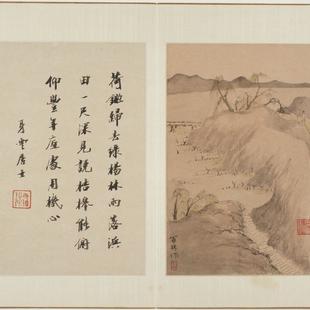 荷鋤歸去綠楊林雨落
田一尺深見說桔槔能俯
仰豐年應廢用機心
身雲居士